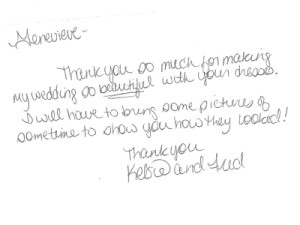 Genevieve-
Thank you so much for making
my wedding so beautiful with your dresses.
I will have to bring some pictures of
sometime to show you how they looked!
Thank you
Kelsie and Jud